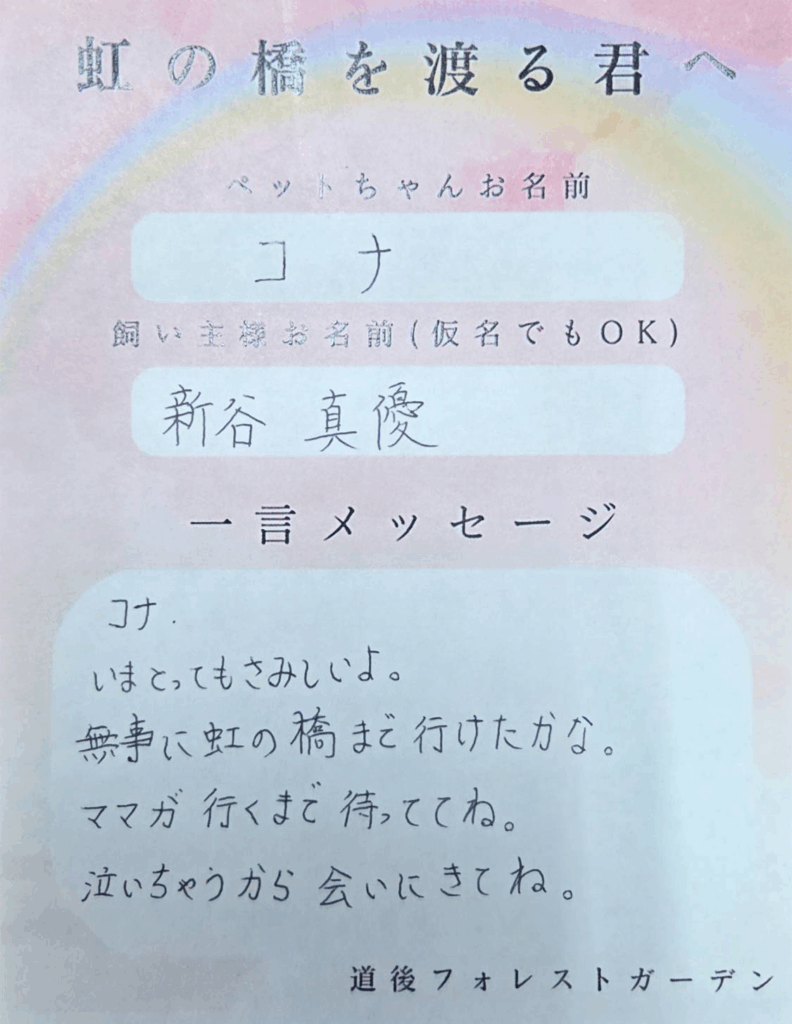 虹の橋を渡る君へ
ペットちゃんお名前
コナ
飼い主様お名前(仮名でもOK)
新谷 真優
一言メッセージ
コナ.
いまとってもさみしいよ。
無事に虹の橋まで行けたかな。
ママが行くまで待っててね。
泣いちゃうから会いにきてね。
道後フォレストガーデン